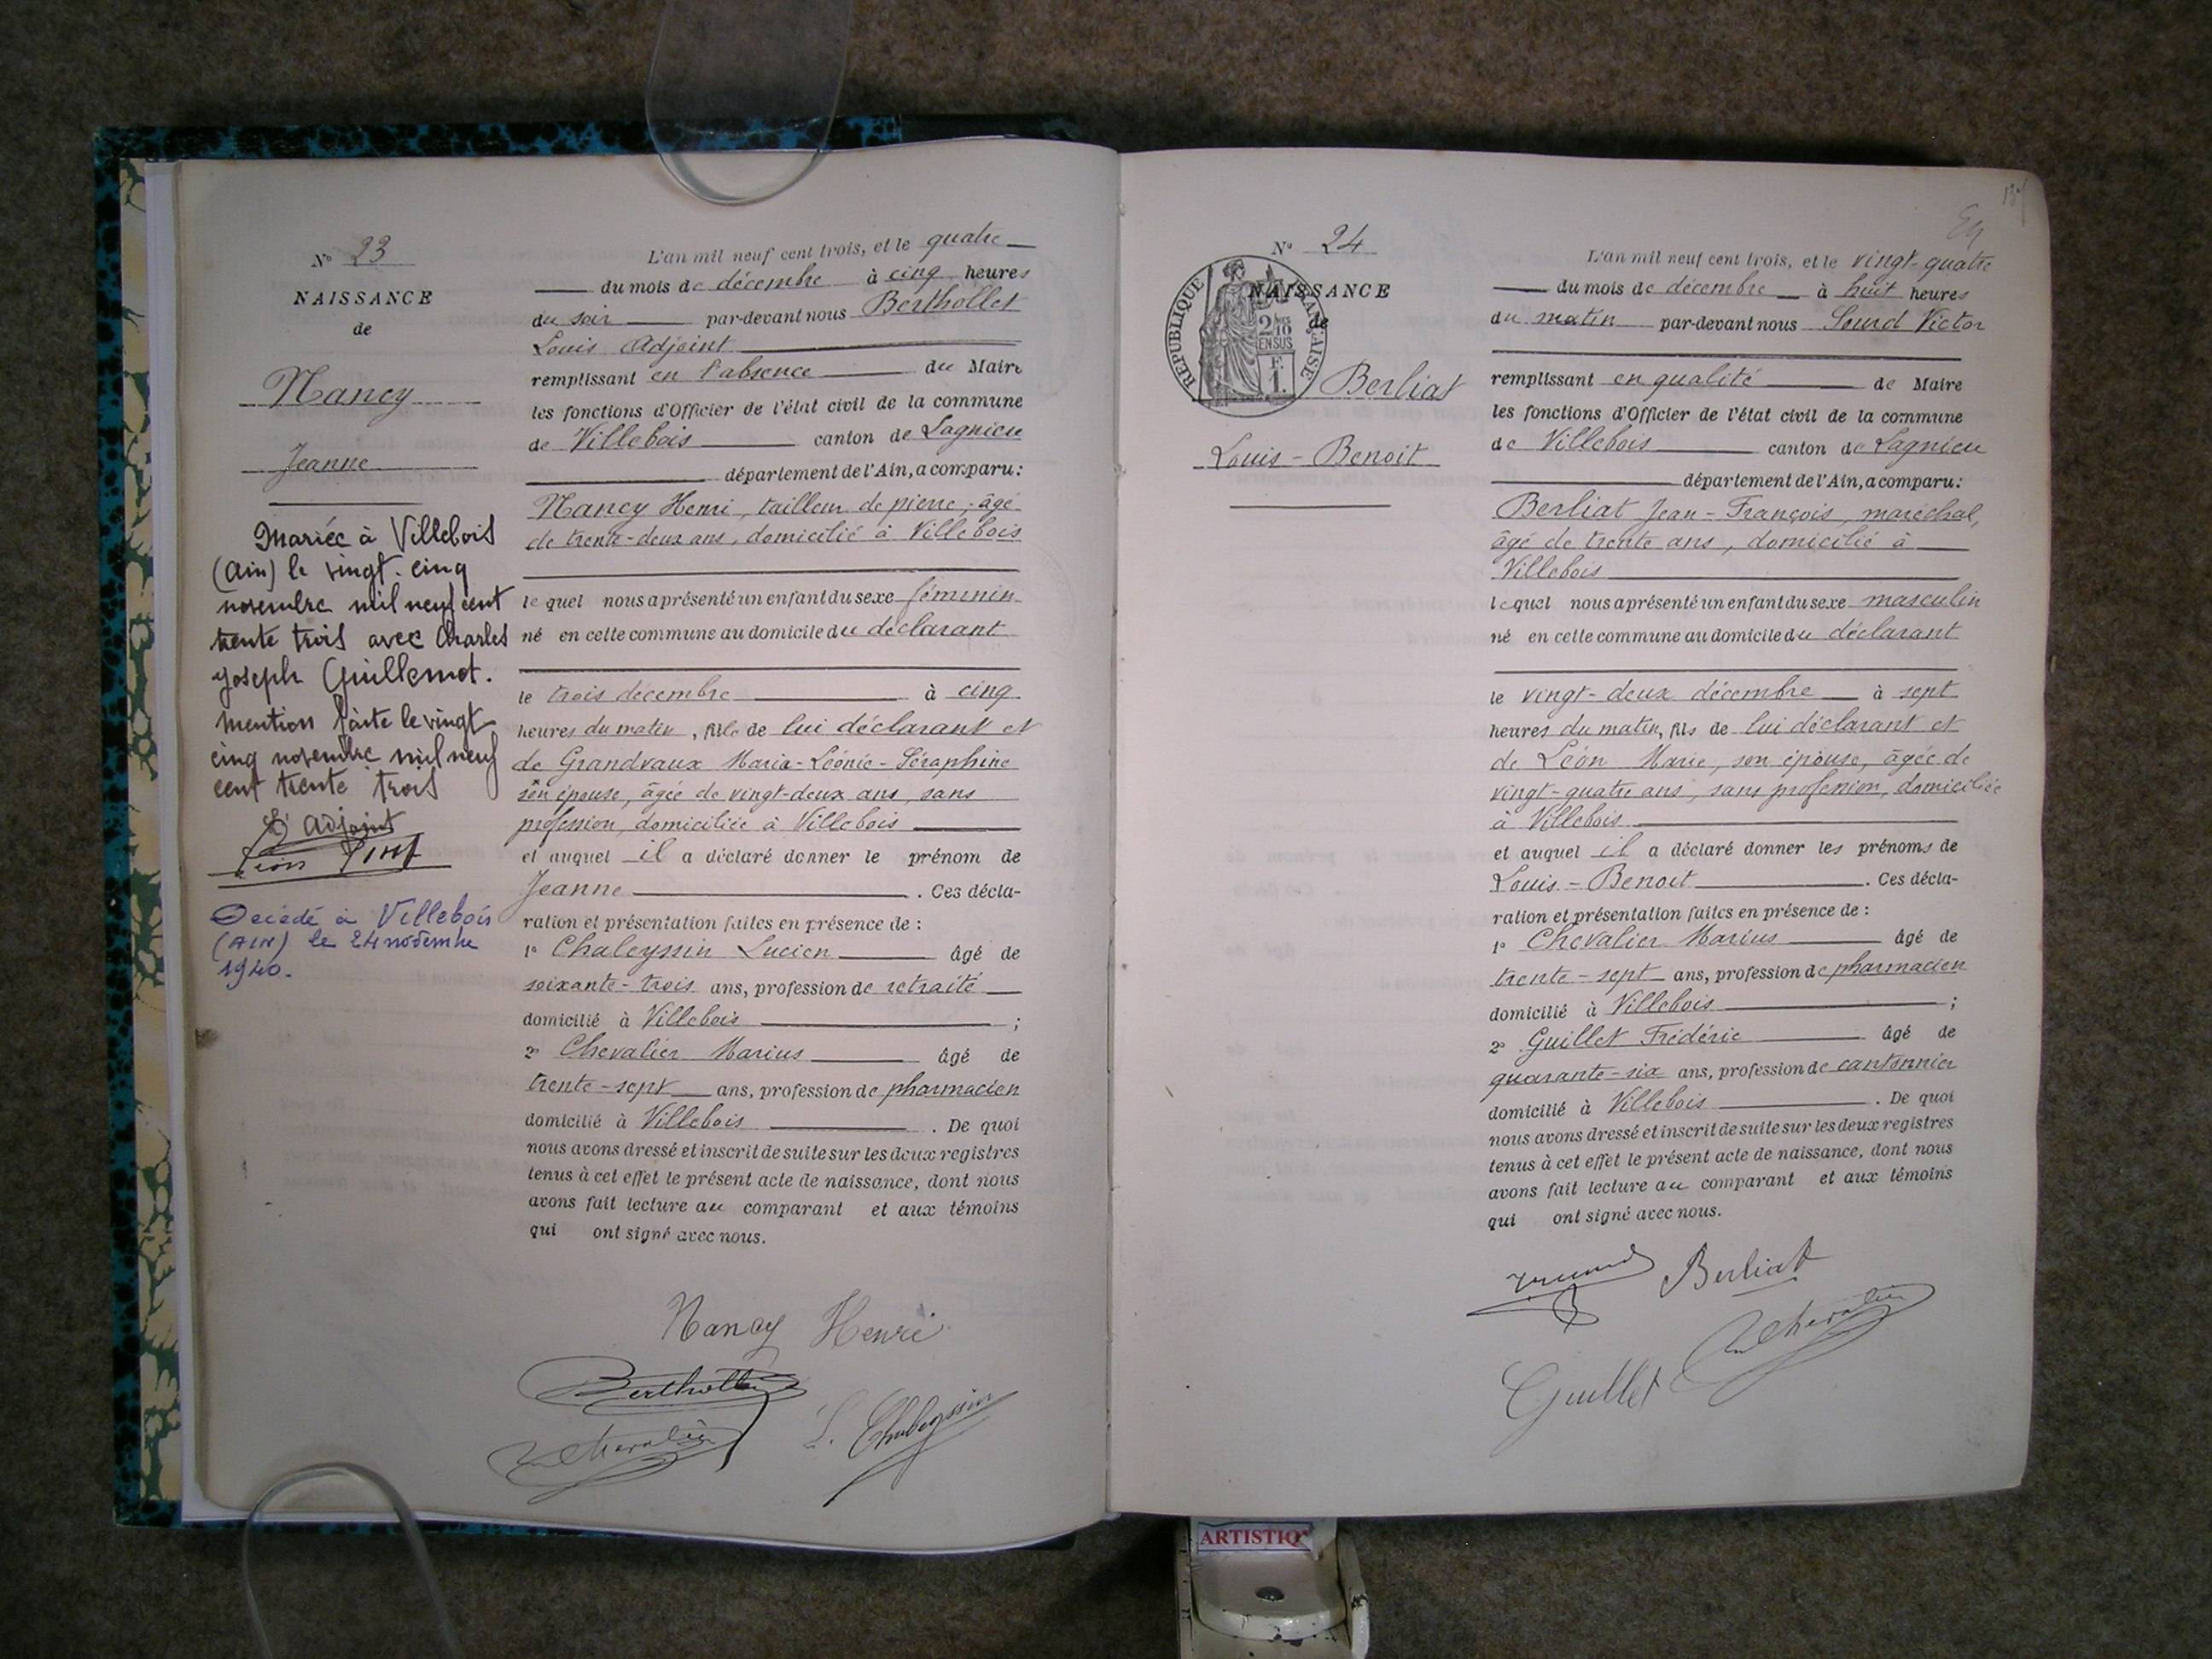 N° 23
NAISSANCE
de
Nancy
Jeanne
Mariée à Villebois
(Ain) le vingt-cinq
novembre mil neuf cent
trente trois avec Charles
Joseph Guillemot.
Mention faite le vingt
cinq novembre mil neuf
cent trente trois
L'adjoint
Decédé à Villebois
(AIN) le 24 novembre
1940.
L'an mil neuf cent trois, et le quatre
du mois de décembre à cinq heures
du soir par-devant nous Berthollet
Louis Adjoint
remplissant en l'absence du Maire
les fonctions d'Officier de l'état civil de la commune
de Villebois canton de Lagnieu
département de l'Ain, a comparu:
Nancy Henri, tailleur de pierre, âgé
de trente-deux ans, domicilié à Villebois
le quel nous a présenté un enfant du sexe féminin
né en cette commune au domicile du déclarant
le trois décembre à cinq
heures du matin, fille de lui déclarant et
de Grandvaux Maria-Léonie-Séraphine
son épouse, âgée de vingt-deux ans, sans
profession, domiciliée à Villebois
et auquel il a déclaré donner le prénom de
Jeanne. Ces décla-
ration et présentation faites en présence de :
1° Chaleyssin Lucien âgé de
soixante-trois ans, profession de retraité
domicilié à Villebois ;
2° Chevalier Marius âgé de
trente-sept ans, profession de pharmacien
domicilié à Villebois. De quoi
nous avons dressé et inscrit de suite sur les deux registres
tenus à cet effet le présent acte de naissance, dont nous
avons fait lecture au comparant et aux témoins
qui ont signé avec nous.
Nancy Henri
Berthollet
Chevalier L. Chaleyssin
N° 24
NAISSANCE
de
REPUBLIQUE FRANÇAISE
2/10 EN SUS
F. 1.
Berliat
Louis-Benoit
L'an mil neuf cent trois, et le vingt-quatre
du mois de décembre à huit heures
du matin par-devant nous Sourd Victor
remplissant en qualité de Maire
les fonctions d'Officier de l'état civil de la commune
de Villebois canton de Lagnieu
département de l'Ain, a comparu:
Berliat Jean-François, maréchal,
âgé de trente ans, domicilié à
Villebois
lequel nous a présenté un enfant du sexe masculin
né en cette commune au domicile du déclarant
le vingt-deux décembre à sept
heures du matin, fils de lui déclarant et
de Léon Marie, son épouse, âgée de
vingt-quatre ans, sans profession, domiciliée
à Villebois
et auquel il a déclaré donner les prénoms de
Louis-Benoit. Ces décla-
ration et présentation faites en présence de :
1° Chevalier Marius âgé de
trente-sept ans, profession de pharmacien
domicilié à Villebois ;
2° Guillet Frédéric âgé de
quarante-six ans, profession de cantonnier
domicilié à Villebois. De quoi
nous avons dressé et inscrit de suite sur les deux registres
tenus à cet effet le présent acte de naissance, dont nous
avons fait lecture au comparant et aux témoins
qui ont signé avec nous.
Berliat
Chevalier
Guillet
ARTISTIQ